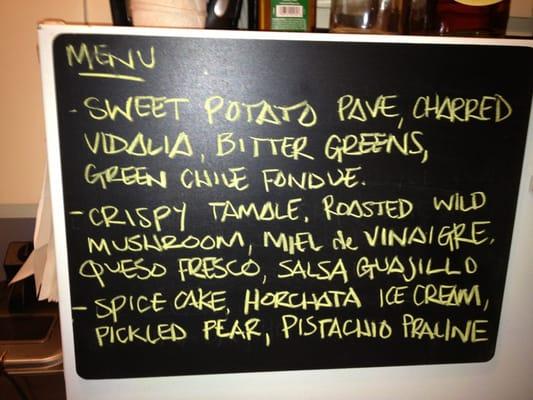 MENU
- SWEET POTATO PAVE, CHARRED
VIDALIA, BITTER GREENS,
GREEN CHILE FONDUE.
- CRISPY TAMALE, ROASTED WILD
MUSHROOM, MIEL de VINAIGRE,
QUESO FRESCO, SALSA GUAJILLO
- SPICE CAKE, HORCHATA ICE CREAM,
PICKLED PEAR, PISTACHIO PRALINE